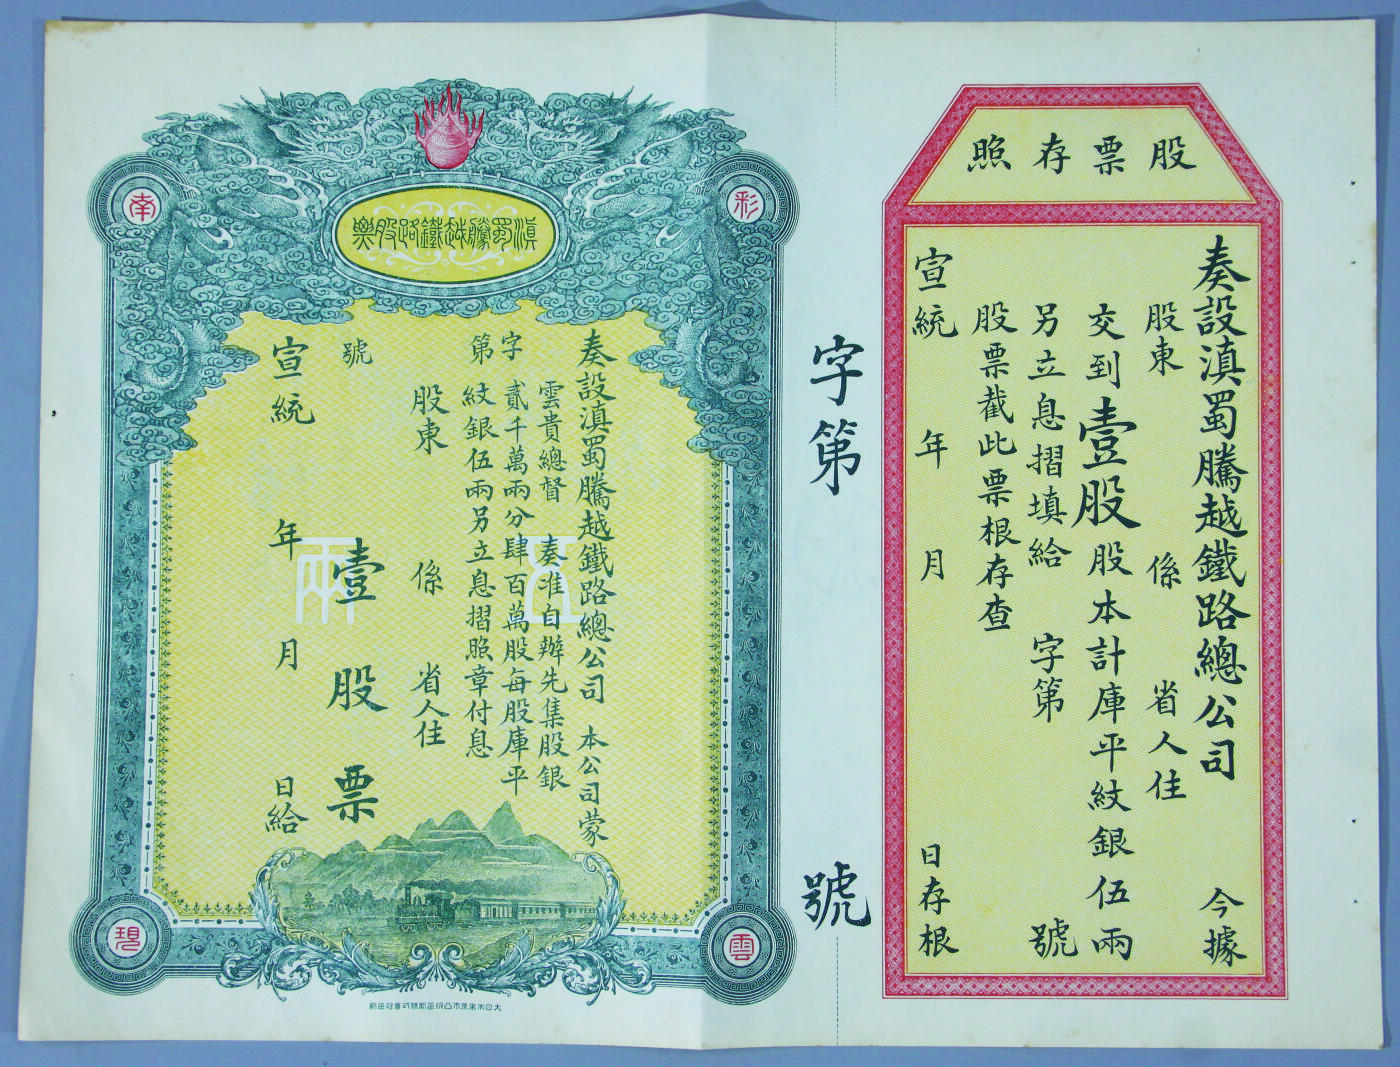 股票存照
奏設滇蜀騰越鐵路總公司 今據
股東 係 省人住
交到壹股股本計庫平紋銀伍兩
另立息摺填給 字第 號
股票截此票根存查
宣統 年 月 日存根
字第 號
滇蜀騰越鐵路股票
彩
雲
南
現
奏設滇蜀騰越鐵路總公司 本公司蒙
雲貴總督 奏准自辦先集股銀
貳千萬兩分肆百萬股每股庫平
紋銀伍兩另立息摺照章付息
字第 號
股東 係 省人住
壹股票
宣統 年 月 日給
五兩